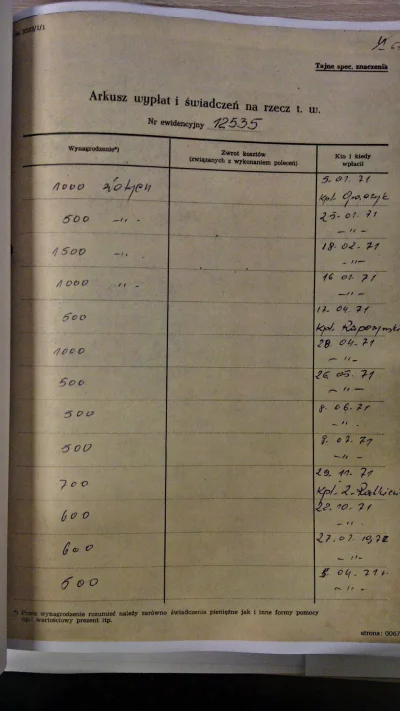 2020/1/1
Tajne spec. znaczenia
Arkusz wypłat i świadczeń na rzecz t. w.
Nr ewidencyjny 12535
Wynagrodzenie*)
Zwrot kosztów
(związanych z wykonaniem poleceń)
Kto i kiedy
wpłacił
1000 złotych 5.01.71
kpt.
500 —„— 25.01.71
—„—
1500 —„— 18.02.71
—„—
1000 —„— 16 71
—„—
500 17.04.71
kpt.
1000 28.04.71
—„—
500 26.05.71
—„—
500 8.06.71
—„—
500 71
—„—
700 29.11.71
kpt.
600 22.10.71
—„—
600 27.01.1972
—„—
500 04.
—„—
*) Przez wynagrodzenie rozumieć należy zarówno świadczenia pieniężne jak i inne formy pomocy
np.: wartościowy prezent itp.
strona: 0067